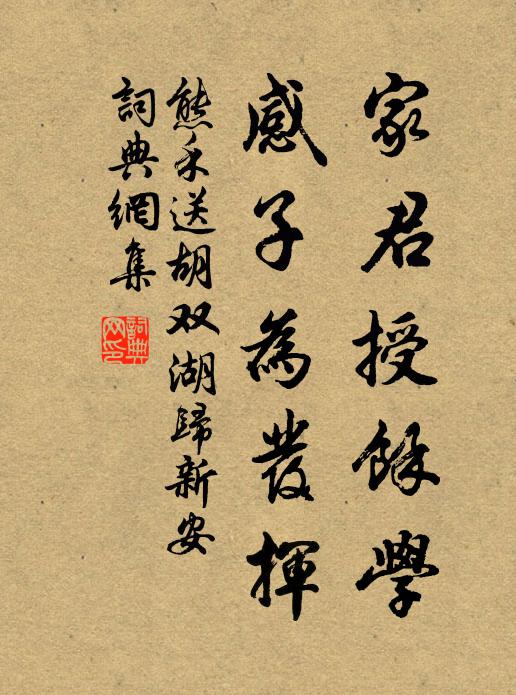 家君授餘學
感子為發揮
熊禾送胡双湖歸新安
詞典網集
詞典網印